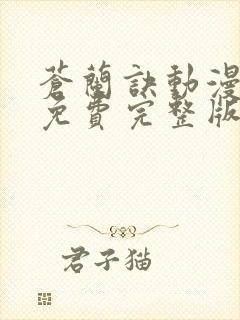 蒼蘭訣動漫
免費完整版
君子猫